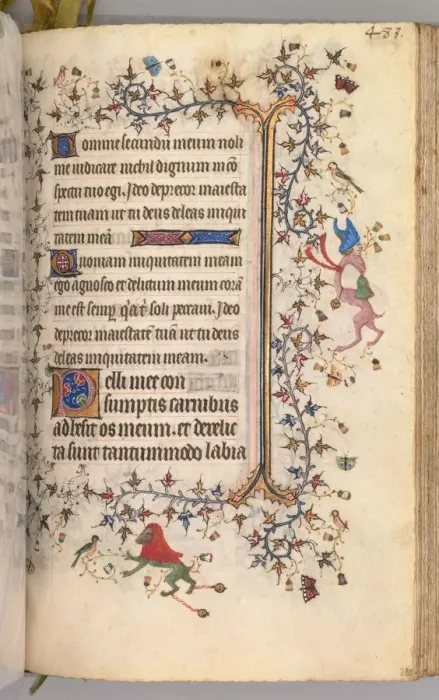 433.
Domine secundū meum noli
me iudicare nichil dignum in cō
spectu tuo egi. Ideo deprecor maiesta
tem tuam ut tu deus deleas iniqui
tatem meā
Quoniam iniquitatem meam
ego agnosco et delictum meum corā
me est semp soli peccaui. Ideo
deprecor maiestatē tuā ut tu deus
deleas iniquitatem meam.
Pelli mee con
sumptis carnibus
adhesit os meum. et derelic
ta sunt tantummodo labia